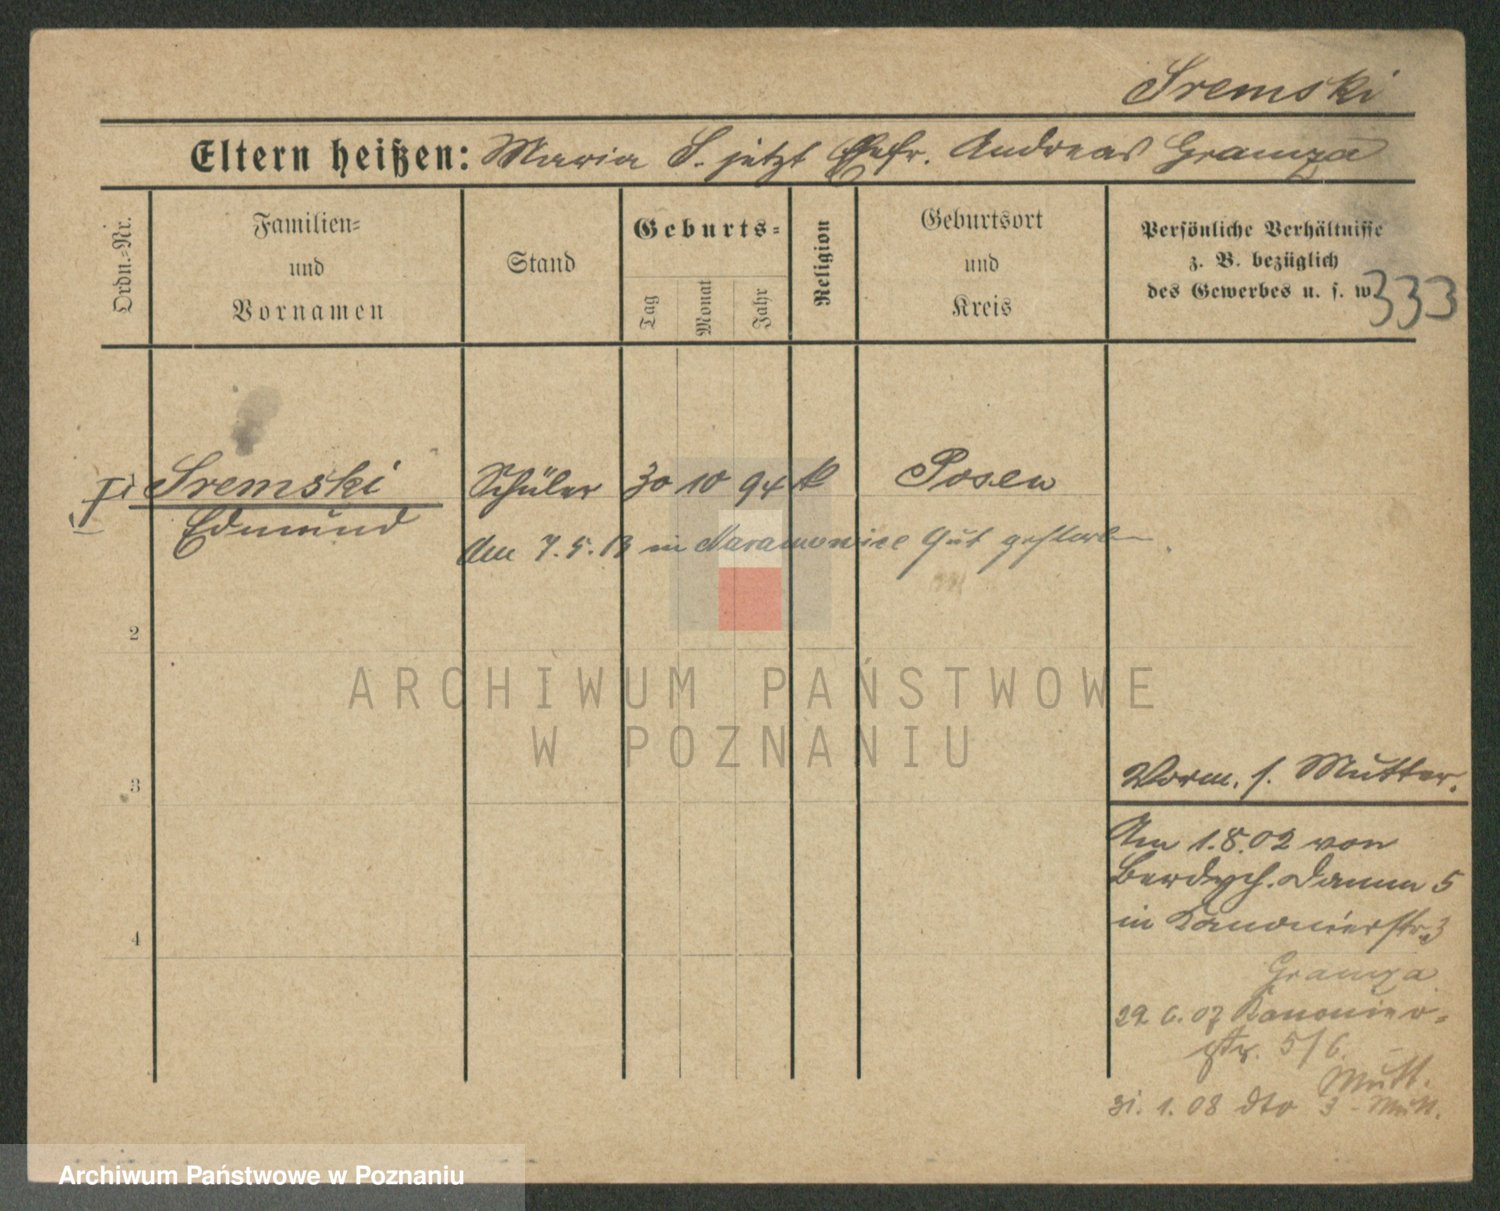 Sremski
Eltern heißen: Maria S. jetzt Ehefr. Andreas Gramza
Ordn.-Nr.
Familien-
und
Vornamen
Stand
Geburts-
Tag
Monat
Jahr
Religion
Geburtsort
und
Kreis
Persönliche Verhältnisse
z. B. bezüglich
des Gewerbes u. s. w.
333
Sremski Schüler 30 10 94 k Posen
Edmund
Am 7.5.13 in Naramowice Gut gestorben
2
3
4
ARCHIWUM PAŃSTWOWE
W POZNANIU
Vorm. s. Mutter.
Am 1.8.02 von
Berdych. Damm 5
in Kanonierstr. 3
Gramza
29 6. 07 Kanonier-
str. 5/6.
Mutt.
31. 1. 08 dto 3 - Mutt.
Archiwum Państwowe w Poznaniu